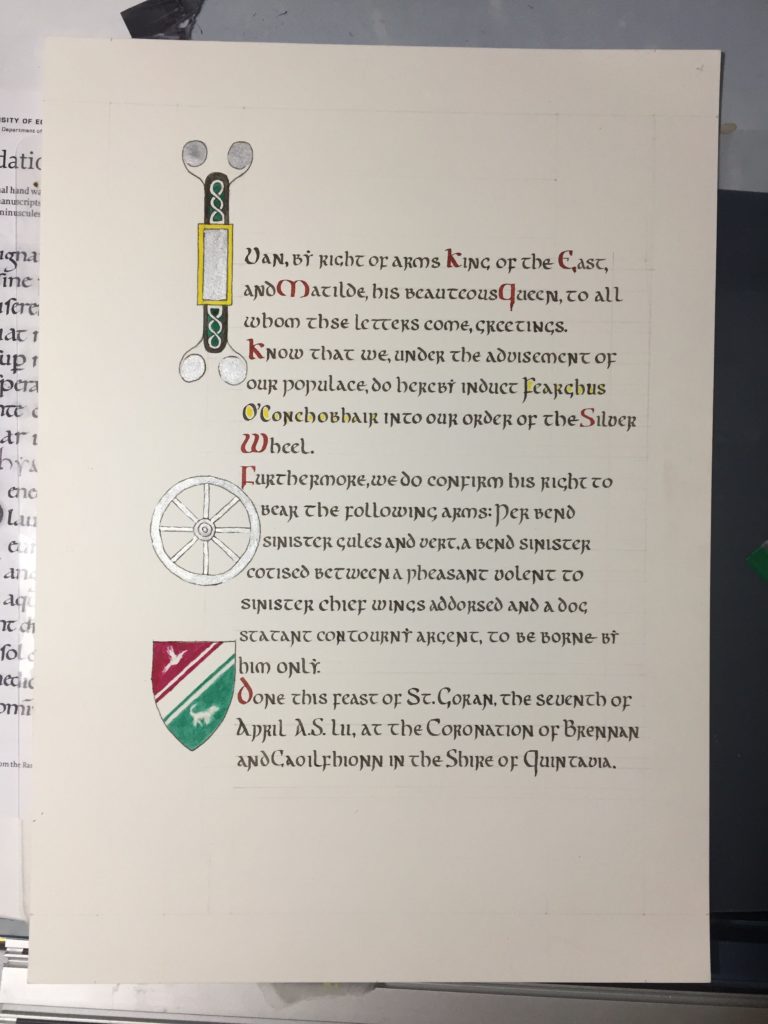 SITY OF E
Department of
datio
al hand wa
anuscripts
minuscules
IVAN, by right of arms King of the East,
and Matilde, his beauteous Queen, to all
whom thse letters come, greetings.
Know that we, under the advisement of
our populace, do hereby induct Fearghus
O'Conchobhair into our order of the Silver
Wheel.
Furthermore, we do confirm his right to
bear the following arms: Per bend
sinister gules and vert, a bend sinister
cotised between a pheasant volent to
sinister chief wings addorsed and a dog
statant contourny argent, to be borne by
him only.
Done this feast of St. Goran, the seventh of
April A.S. Lii, at the Coronation of Brennan
and Caoilfhionn in the Shire of Quintavia.
om the Ra